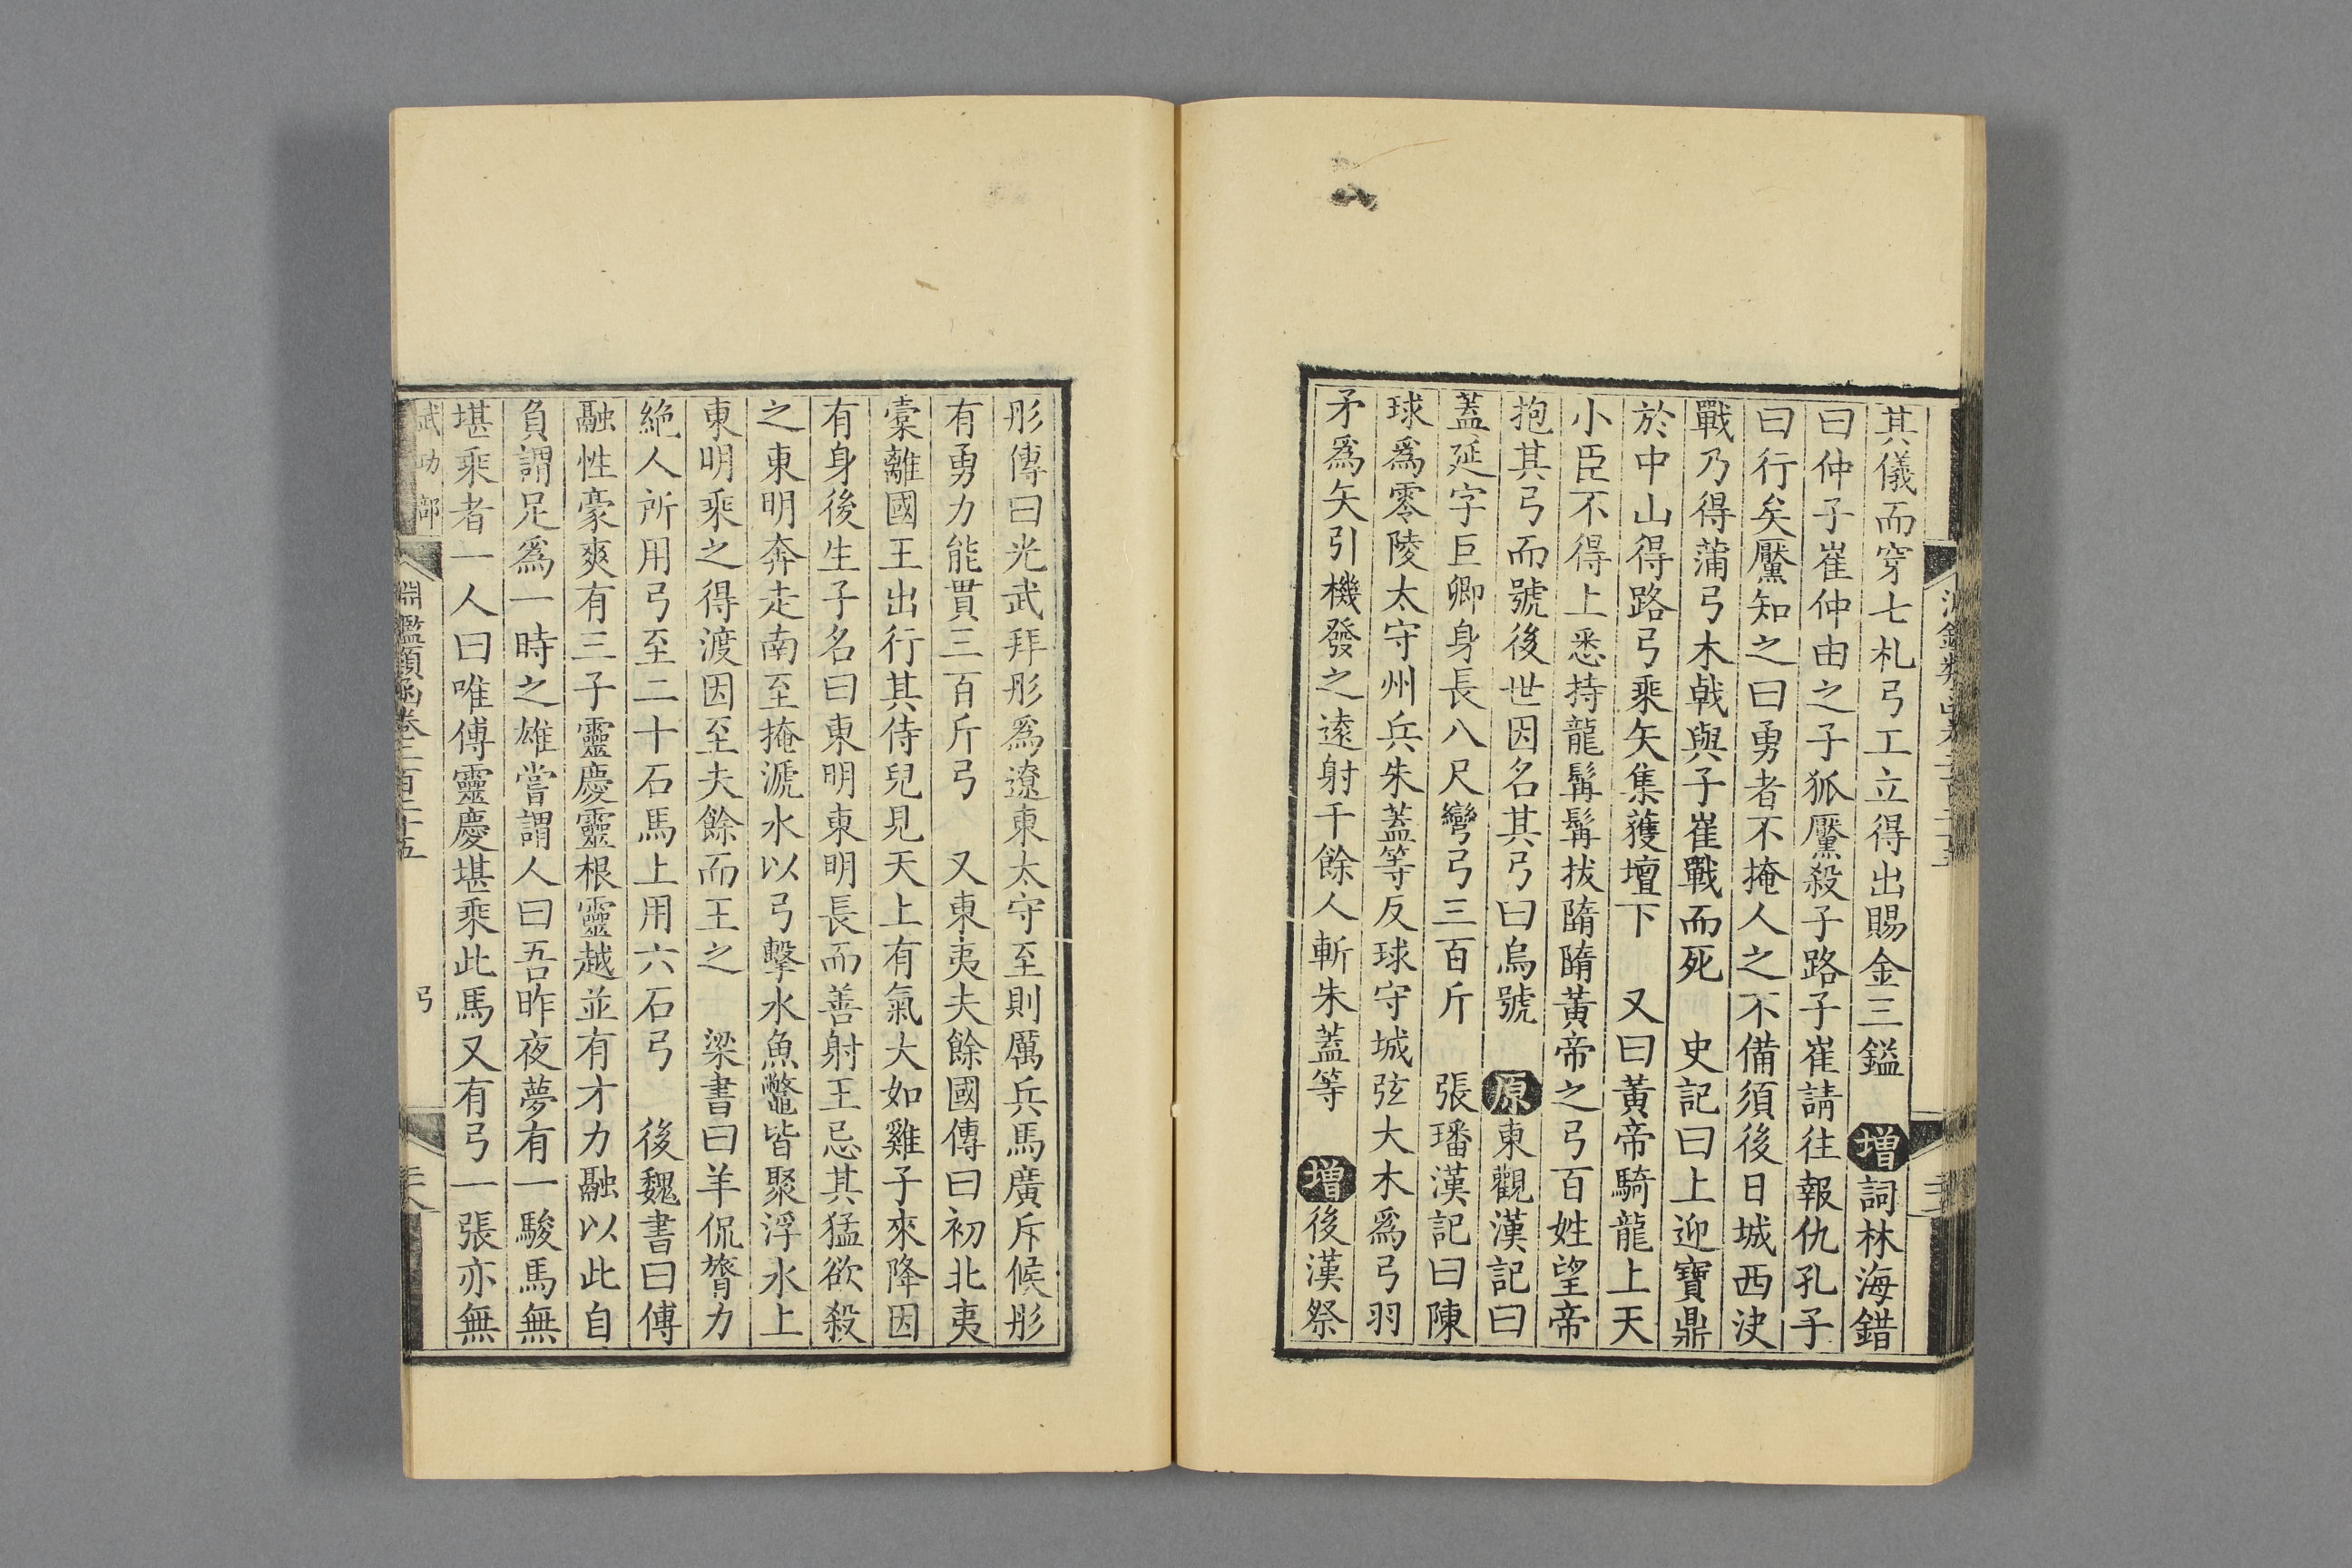 其儀而穿七札弓工立得出賜金三鎰　增詞林海錯
曰仲子崔仲由之子狐黶殺子路子崔請往報仇孔子
曰行矣黶知之曰勇者不掩人之不備須後日城西決
戰乃得蒲弓木戟與子崔戰而死　史記曰上迎寶鼎
於中山得路弓乘矢集蒦壇下　又曰黃帝騎龍上天
小臣不得上悉持龍髯髯拔隋隋黃帝之弓百姓望帝
抱其弓而號後世因名其弓曰烏號　原東觀漢記曰
蓋延字巨卿身長八尺彎弓三百斤　張璠漢記曰陳
球爲零陵太守州兵朱蓋等反球守城弦大木爲弓羽
矛爲矢引機發之遠射千餘人斬朱蓋等　增後漢祭
肜傳曰光武拜肜爲遼東太守至則厲兵馬廣斥候肜
有勇力能貫三百斤弓　又東夷夫餘國傳曰初北夷
槖離國王出行其侍兒見天上有氣大如雞子來降因
有身後生子名曰東明東明長而善射王忌其猛欲殺
之東明奔走南至掩㴲水以弓擊水魚鼈皆聚浮水上
東明乘之得渡因至夫餘而王之　梁書曰羊侃膂力
絶人所用弓至二十石馬上用六石弓　後魏書曰傅
融性豪爽有三子靈慶靈根靈越並有才力融以此自
負謂足爲一時之雄嘗謂人曰吾昨夜夢有一駿馬無
堪乘者一人曰唯傅靈慶堪乘此馬又有弓一張亦無
武功部
淵鑑類函卷二百二十五
弓